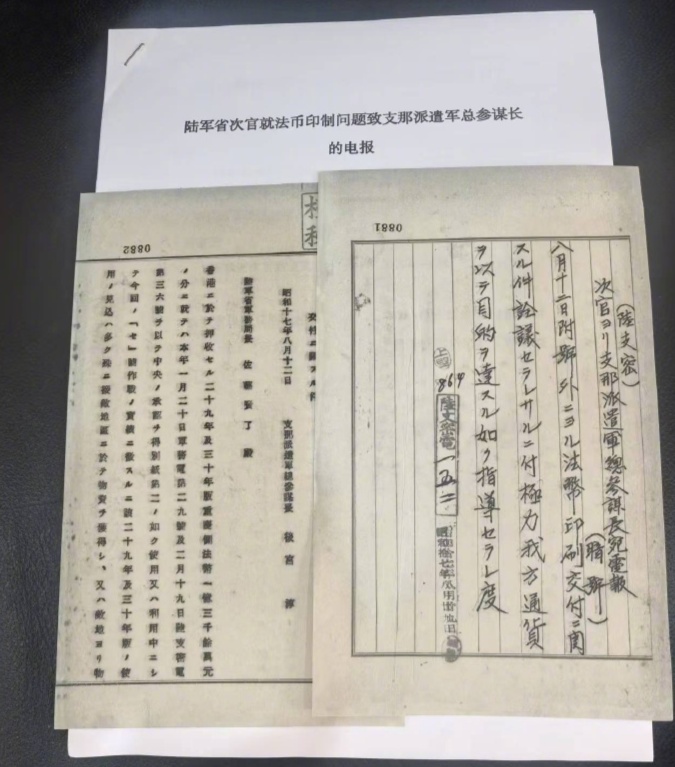 陆军省次官就法币印制问题致支那派遣军总参谋长
的电报
0881
(陸支密)
次官ヨリ支那派遣軍總参謀長宛電報
(暗號)
八月十二日附號外ニヨル法幣印刷交付ニ関
スル件詮議セラレサルニ付極力我方通貨
ヲ以テ目的ヲ達スル如ク指導セラレ度
864
陸支密電一五二
昭和拾七年八月
0882
交付ニ關スル件
昭和十七年八月十二日 支那派遣軍總参謀長 後宮 淳
陸軍省軍務局長 佐藤賢了殿
香港ニ於テ押收セル二十九年及三十年版重慶側法幣一億三千餘萬元
ノ分ニ就テハ本年一月二十日軍務電第二九號及二月十九日陸支密電
第三六號ヲ以テ中央ノ承認ヲ得別紙第二ノ如ク使用又ハ利用中ニシ
テ今回ノ「セ」號作戰ノ實績ニ徴スルニ該二十九年及三十年版ノ使
用ノ見込ハ多ク殊ニ接敵地區ニ於テ物資ヲ獲得シ、又ハ敵地ヨリ物